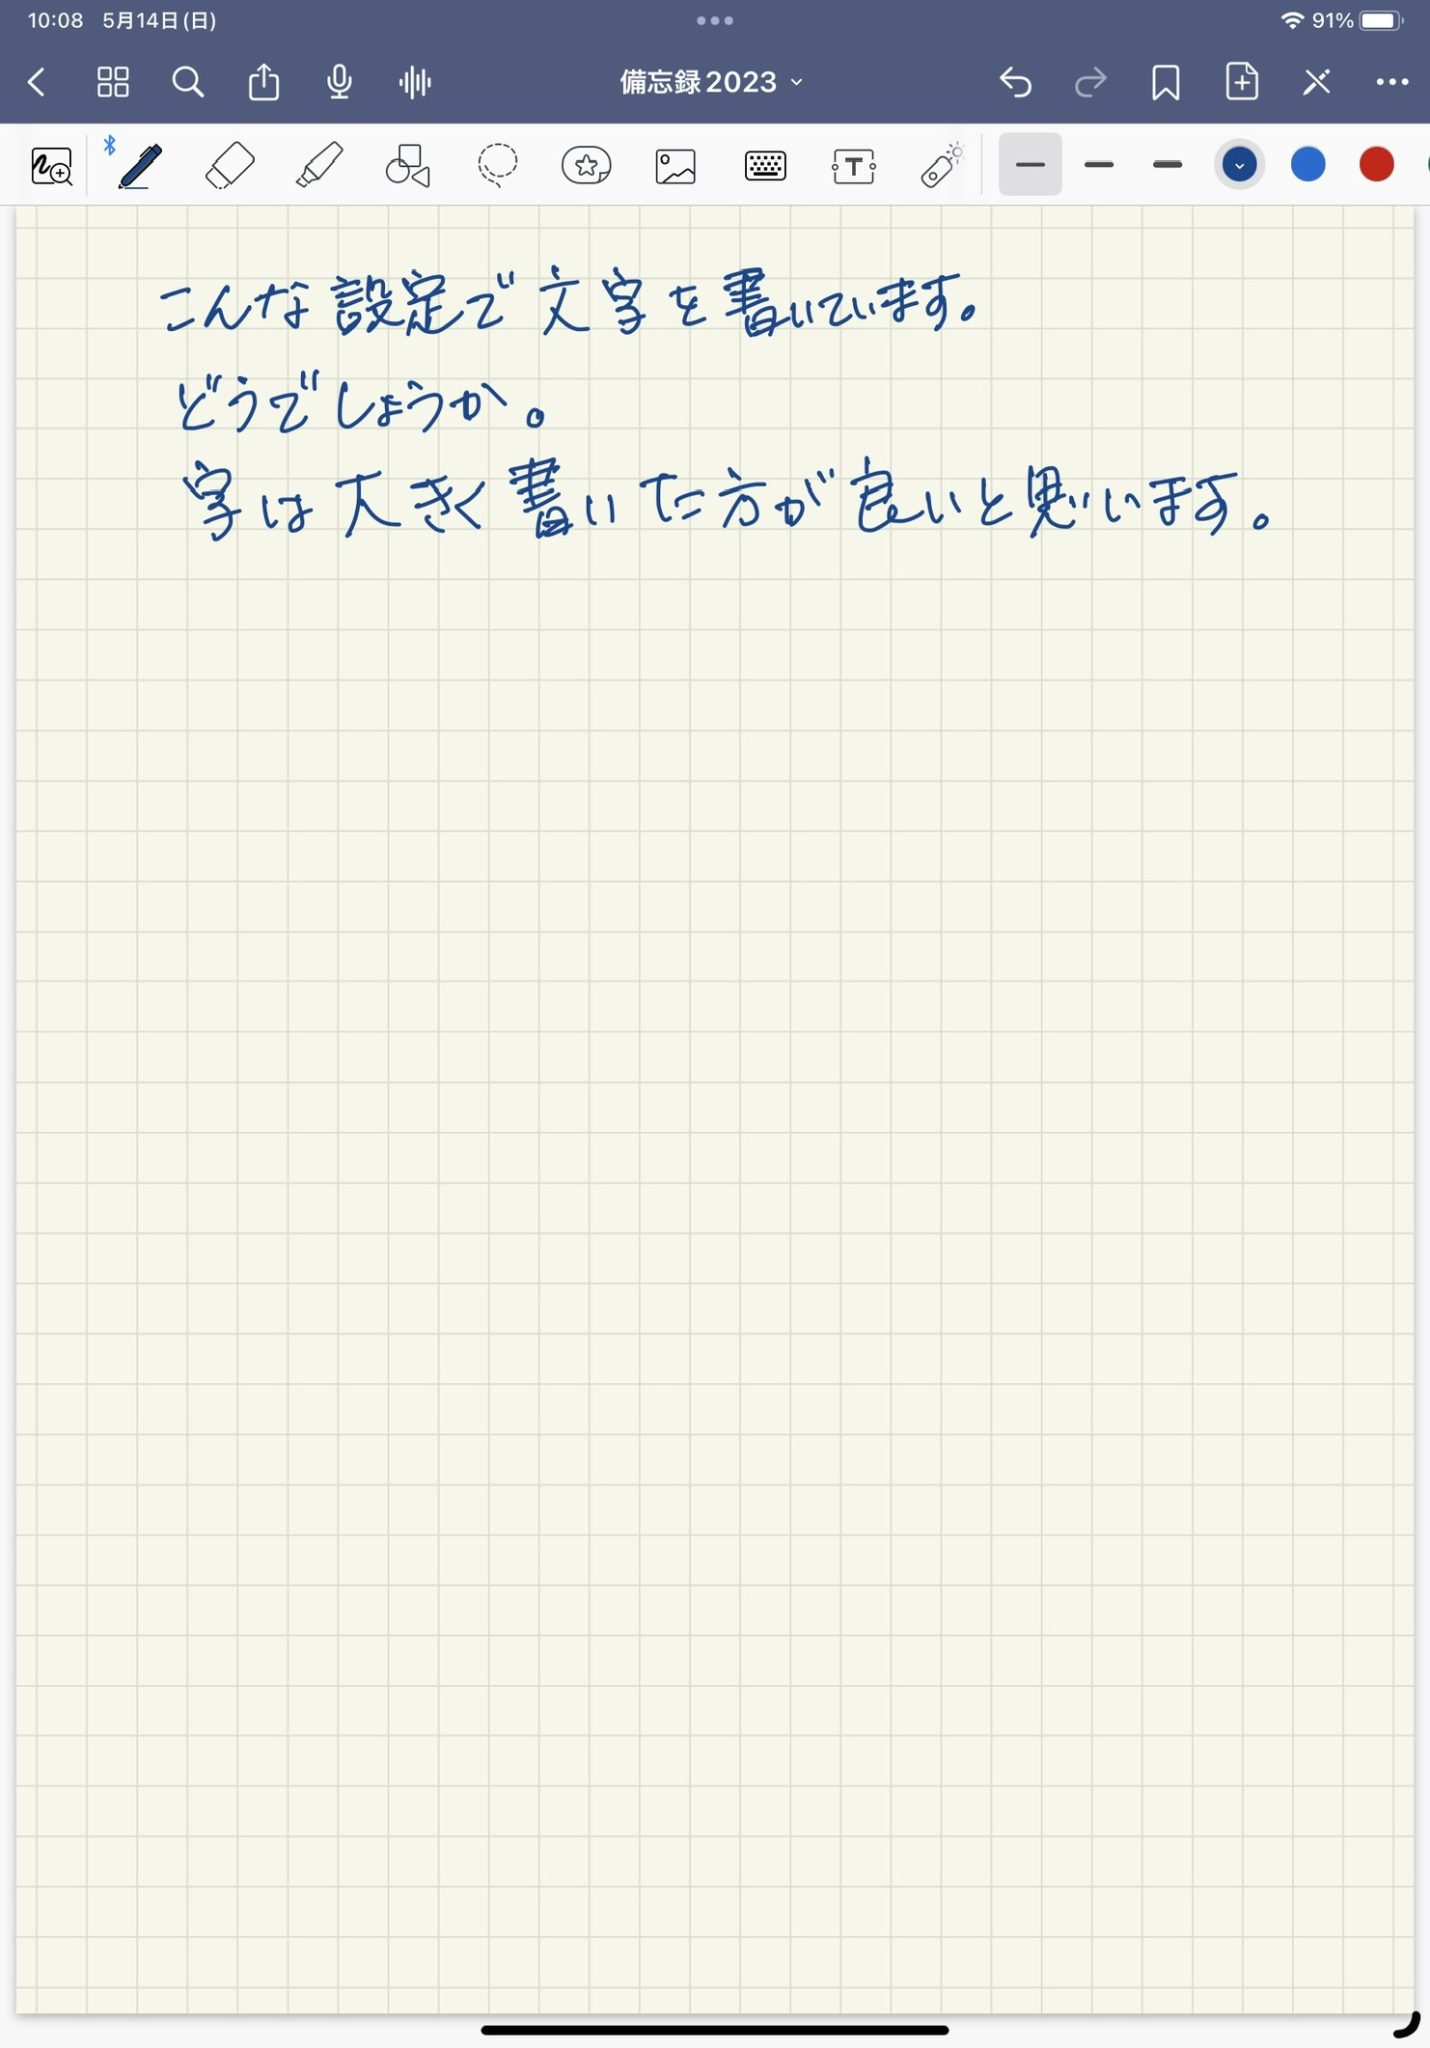 10:08 5月14日(日) 91%
備忘録2023
T
こんな設定で文字を書いています。
どうでしょうか。
字は大きく書いた方が良いと思います。